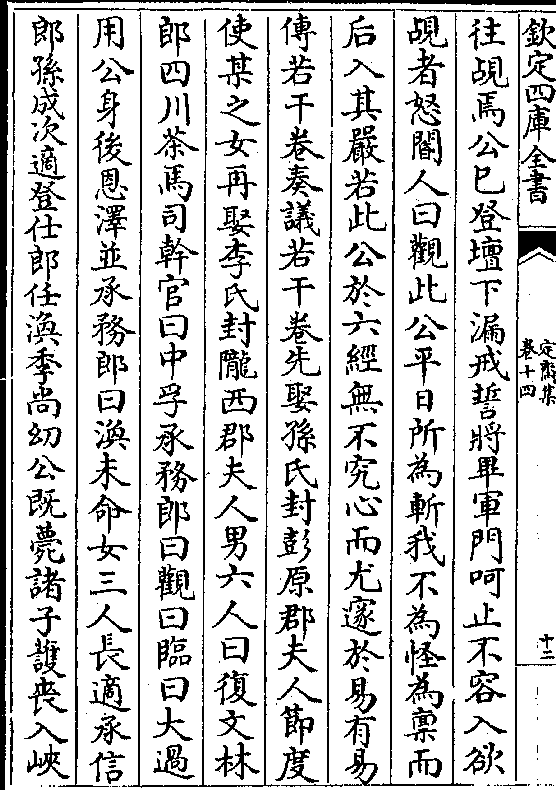 欽定四庫全書
定齋集
卷十四
十二
往覘焉公已登壇下漏戒誓將畢軍門呵止不容入欲
覘者怒閽人曰觀此公平日所為斬我不為怪為稟而
后入其嚴若此公於六經無不究心而尤邃於易有易
傳若干卷奏議若干卷先娶孫氏封彭原郡夫人節度
使某之女再娶李氏封隴西郡夫人男六人曰復文林
郎四川茶馬司幹官曰中孚承務郎曰觀曰臨曰大過
用公身後恩澤並承務郎曰渙未命女三人長適承信
郎孫成次適登仕郎任渙季尚幼公既薨諸子護喪入峽